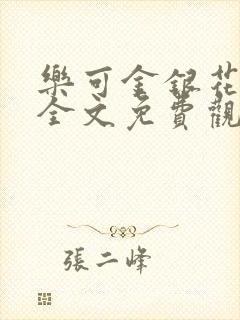 樂可金銀花
全文免費觀
張二峰